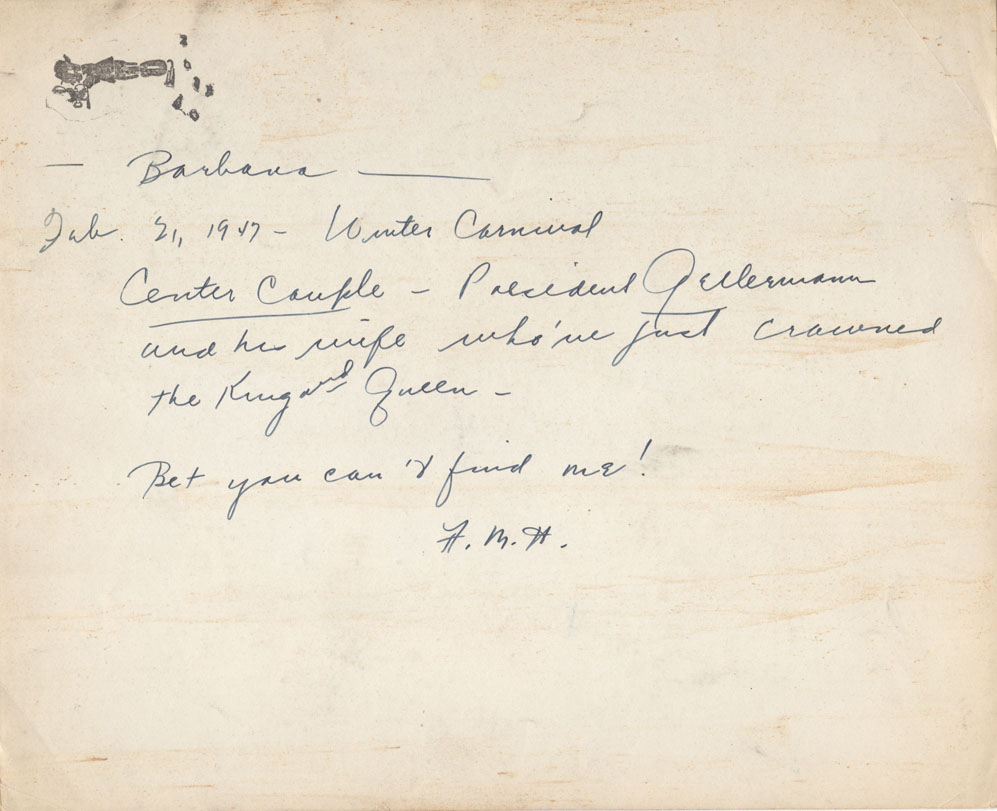 — Barbara —
Feb. 21, 1947 - Winter Carnival
Center Couple - President Gellermann
and his wife who've just crowned
the King and Queen -
Bet you can't find me!
H. M. H.